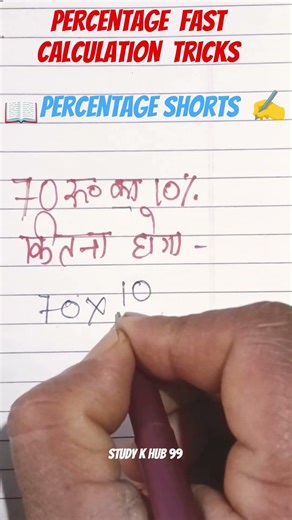 PERCENTAGE FAST
CALCULATION TRICKS
📖 PERCENTAGE SHORTS ✍️
70 रू० का 10%
कितना होगा -
70 × 10
STUDY K HUB 99